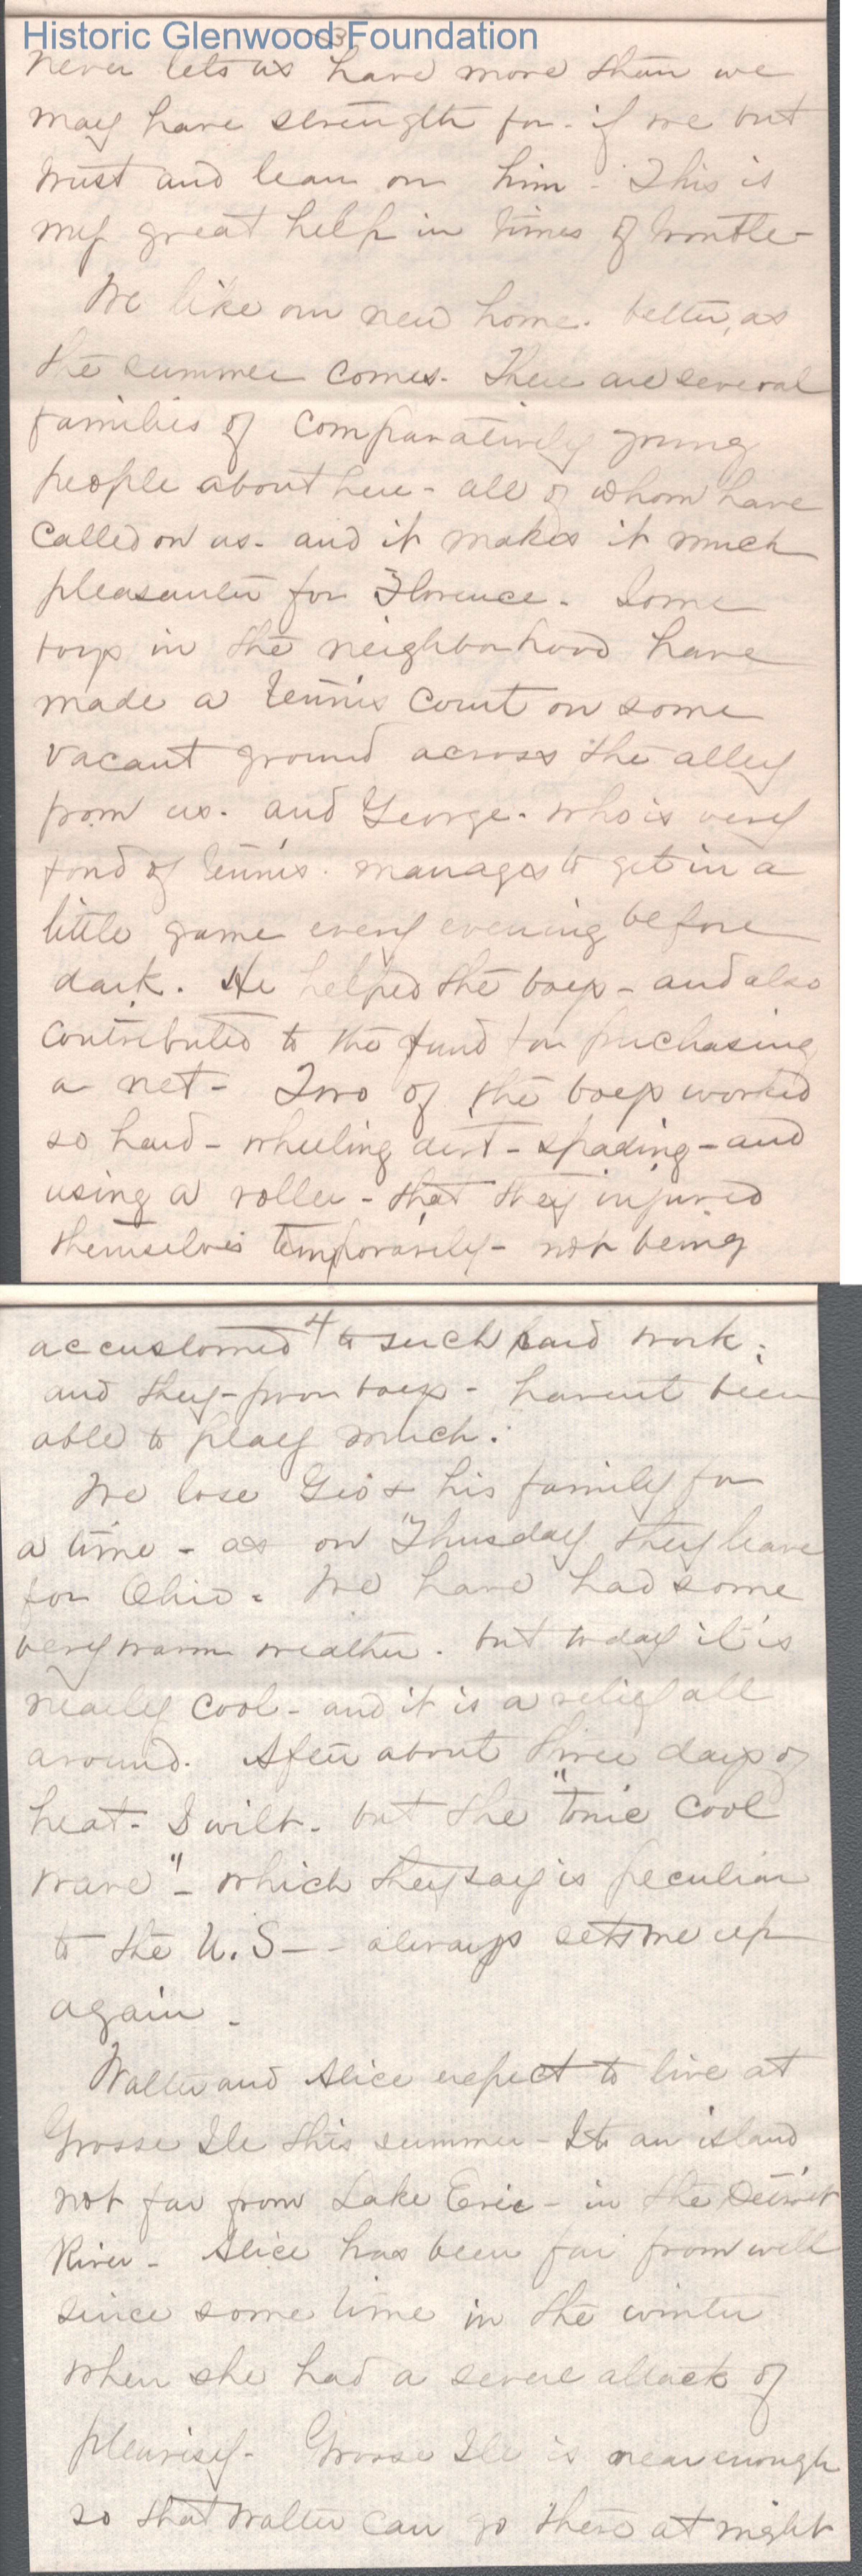 Historic Glenwood Foundation
3
never lets us have more than we
may have strength for - if we but
trust and lean on him - This is
my great help in times of trouble -
We like our new home. better, as
the summer comes. There are several
families of comparatively young
people about here - all of whom have
called on us - and it makes it much
pleasanter for Florence. Some
boys in the neighborhood have
made a tennis court on some
vacant ground across the alley
from us. and George. who is very
fond of tennis. manages to get in a
little game every evening before
dark. He helped the boys - and also
contributed to the fund for purchasing
a net - Two of the boys worked
so hard - wheeling dirt - spading - and
using a roller - that they injured
themselves temporarily - not being
4
accustomed to such hard work.
and they - poor boys - havent been
able to play much.
We lose Geo & his family for
a time - as on Thursday they leave
for Ohio. We have had some
very warm weather. but today it is
nearly cool - and it is a relief all
around. After about three days of
heat - I wilt. but the "tonic cool
wave" - which they say is peculiar
to the U.S - - always sets me up
again -
Walter and Alice expect to live at
Grosse Ile this summer - Its an island
not far from Lake Erie - in the Detroit
River - Alice has been far from well
since some time in the winter
when she had a severe attack of
pleurisy - Grosse Ile is near enough
so that Walter can go there at night